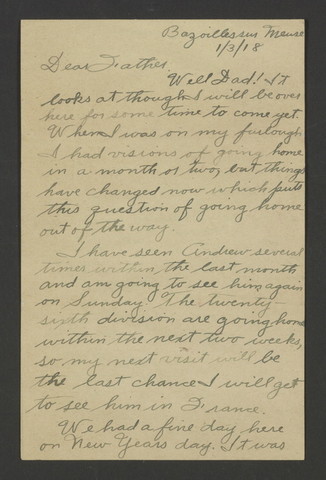 Bazoilles sur Meuse
1/3/18
Dear Father.
Well Dad! It
looks at though I will be over
here for some time to come yet.
When I was on my furlough
I had visions of going home
in a month or two, but things
have changed now which puts
this question of going home
out of the way.
I have seen Andrew several
times within the last month
and am going to see him again
on Sunday. The twenty-
sixth division are going home
within the next two weeks,
so my next visit will be
the last chance I will get
to see him in France.
We had a fine day here
on New Years day. It was